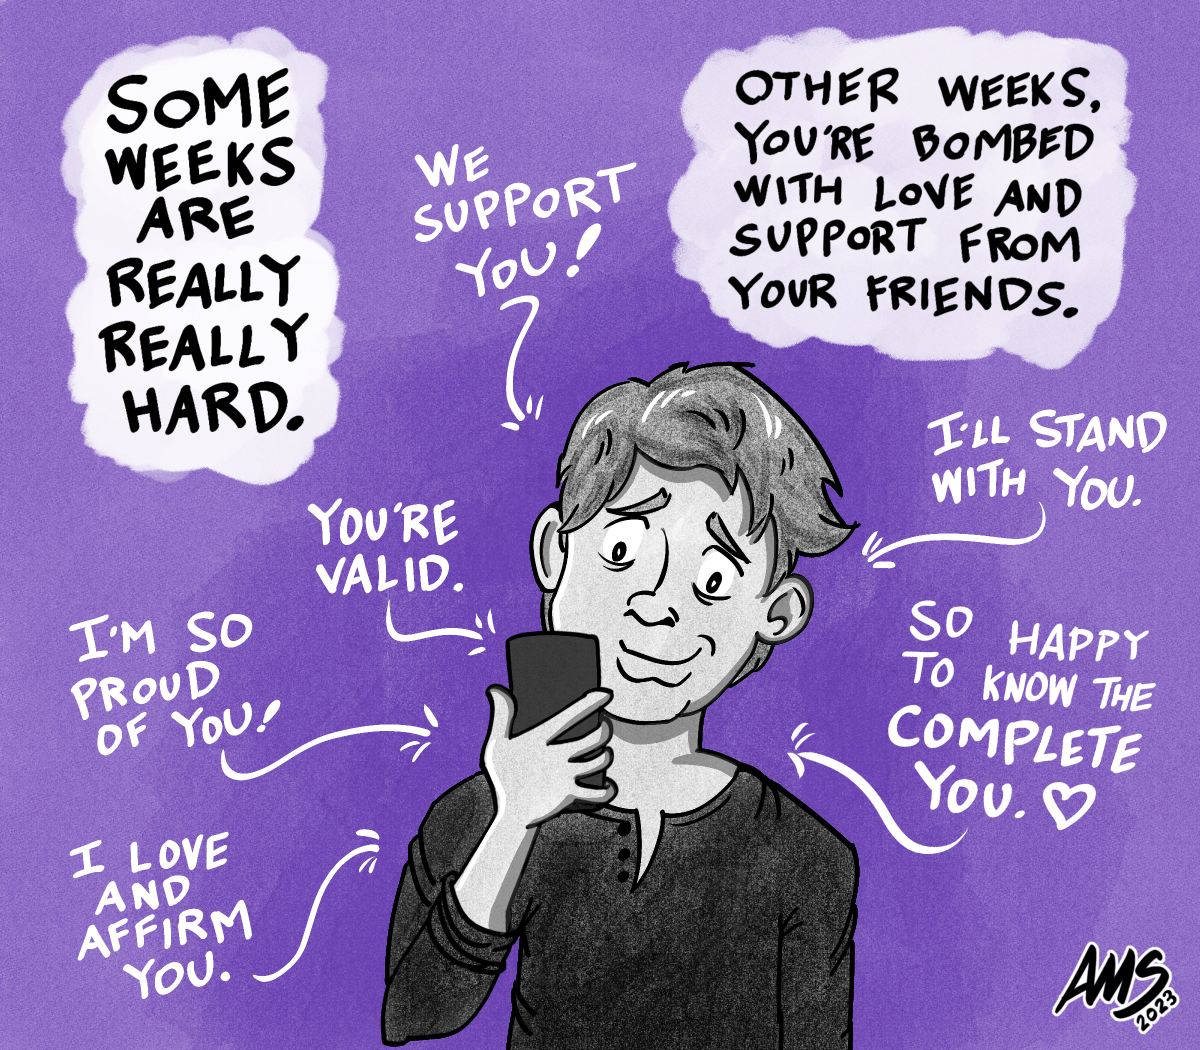 SOME
WEEKS
ARE
REALLY
REALLY
HARD.
OTHER WEEKS,
YOU'RE BOMBED
WITH LOVE AND
SUPPORT FROM
YOUR FRIENDS.
WE
SUPPORT
YOU!
I'LL STAND
WITH YOU.
YOU'RE
VALID.
I'M SO
PROUD
OF YOU!
SO HAPPY
TO KNOW THE
COMPLETE
YOU. ♡
I LOVE
AND
AFFIRM
YOU.
AMS
2023